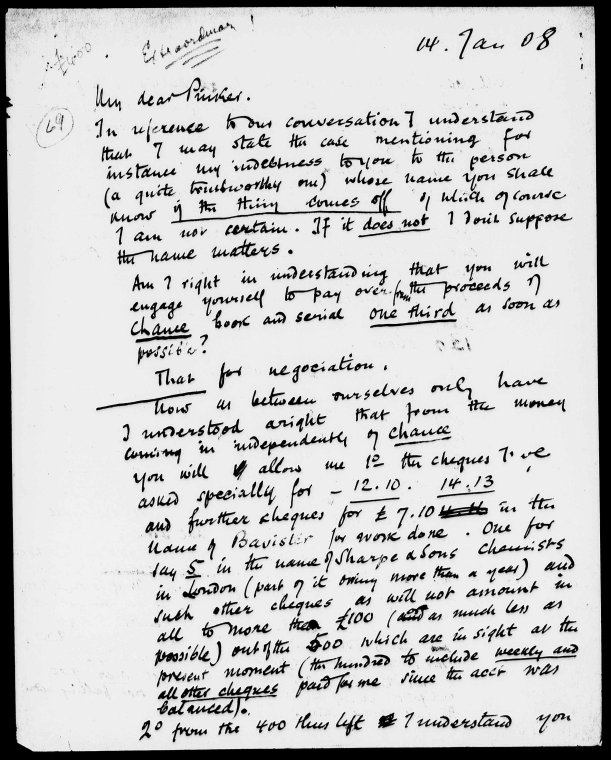 £400
Extraordinary!
14. Jan 08
69
My dear Pinker.
In reference to our conversation I understand
that I may state the case mentioning for
instance my indebtness to you to the person
(a quite trustworthy one) whose name you shall
know if the thing comes off of which of course
I am not certain. If it does not I don't suppose
the name matters.
Am I right in understanding that you will
engage yourself to pay over from the proceeds of
Chance book and serial one third as soon as
possible?
That for negociation.
Now as between ourselves only have
I understood aright that from the money
coming in independently of Chance
you will allow me 1º the cheques I've
asked specially for – 12.10. 14.13
and further cheques for £7.10 in the
name of Bavister for work done. One for
say 5 in the name of Sharpe & Sons Chemists
in London (part of it owing more than a year) and
such other cheques as will not amount in
all to more than £100 (and as much less as
possible) out of the 500 which are in sight at the
present moment (the hundred to include weekly and
all other cheques paid for me since the acct was
balanced).
2º from the 400 thus left I understand you